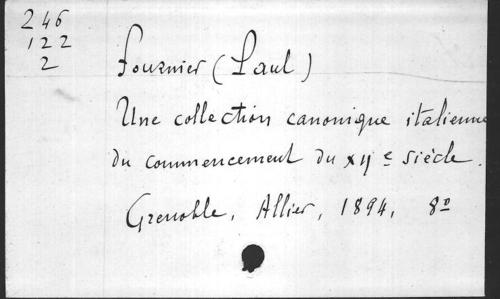 246
122
2
Fournier (Paul)
Une collection canonique italienne
du commencement du XIIe siècle.
Grenoble, Allier, 1894, 8º